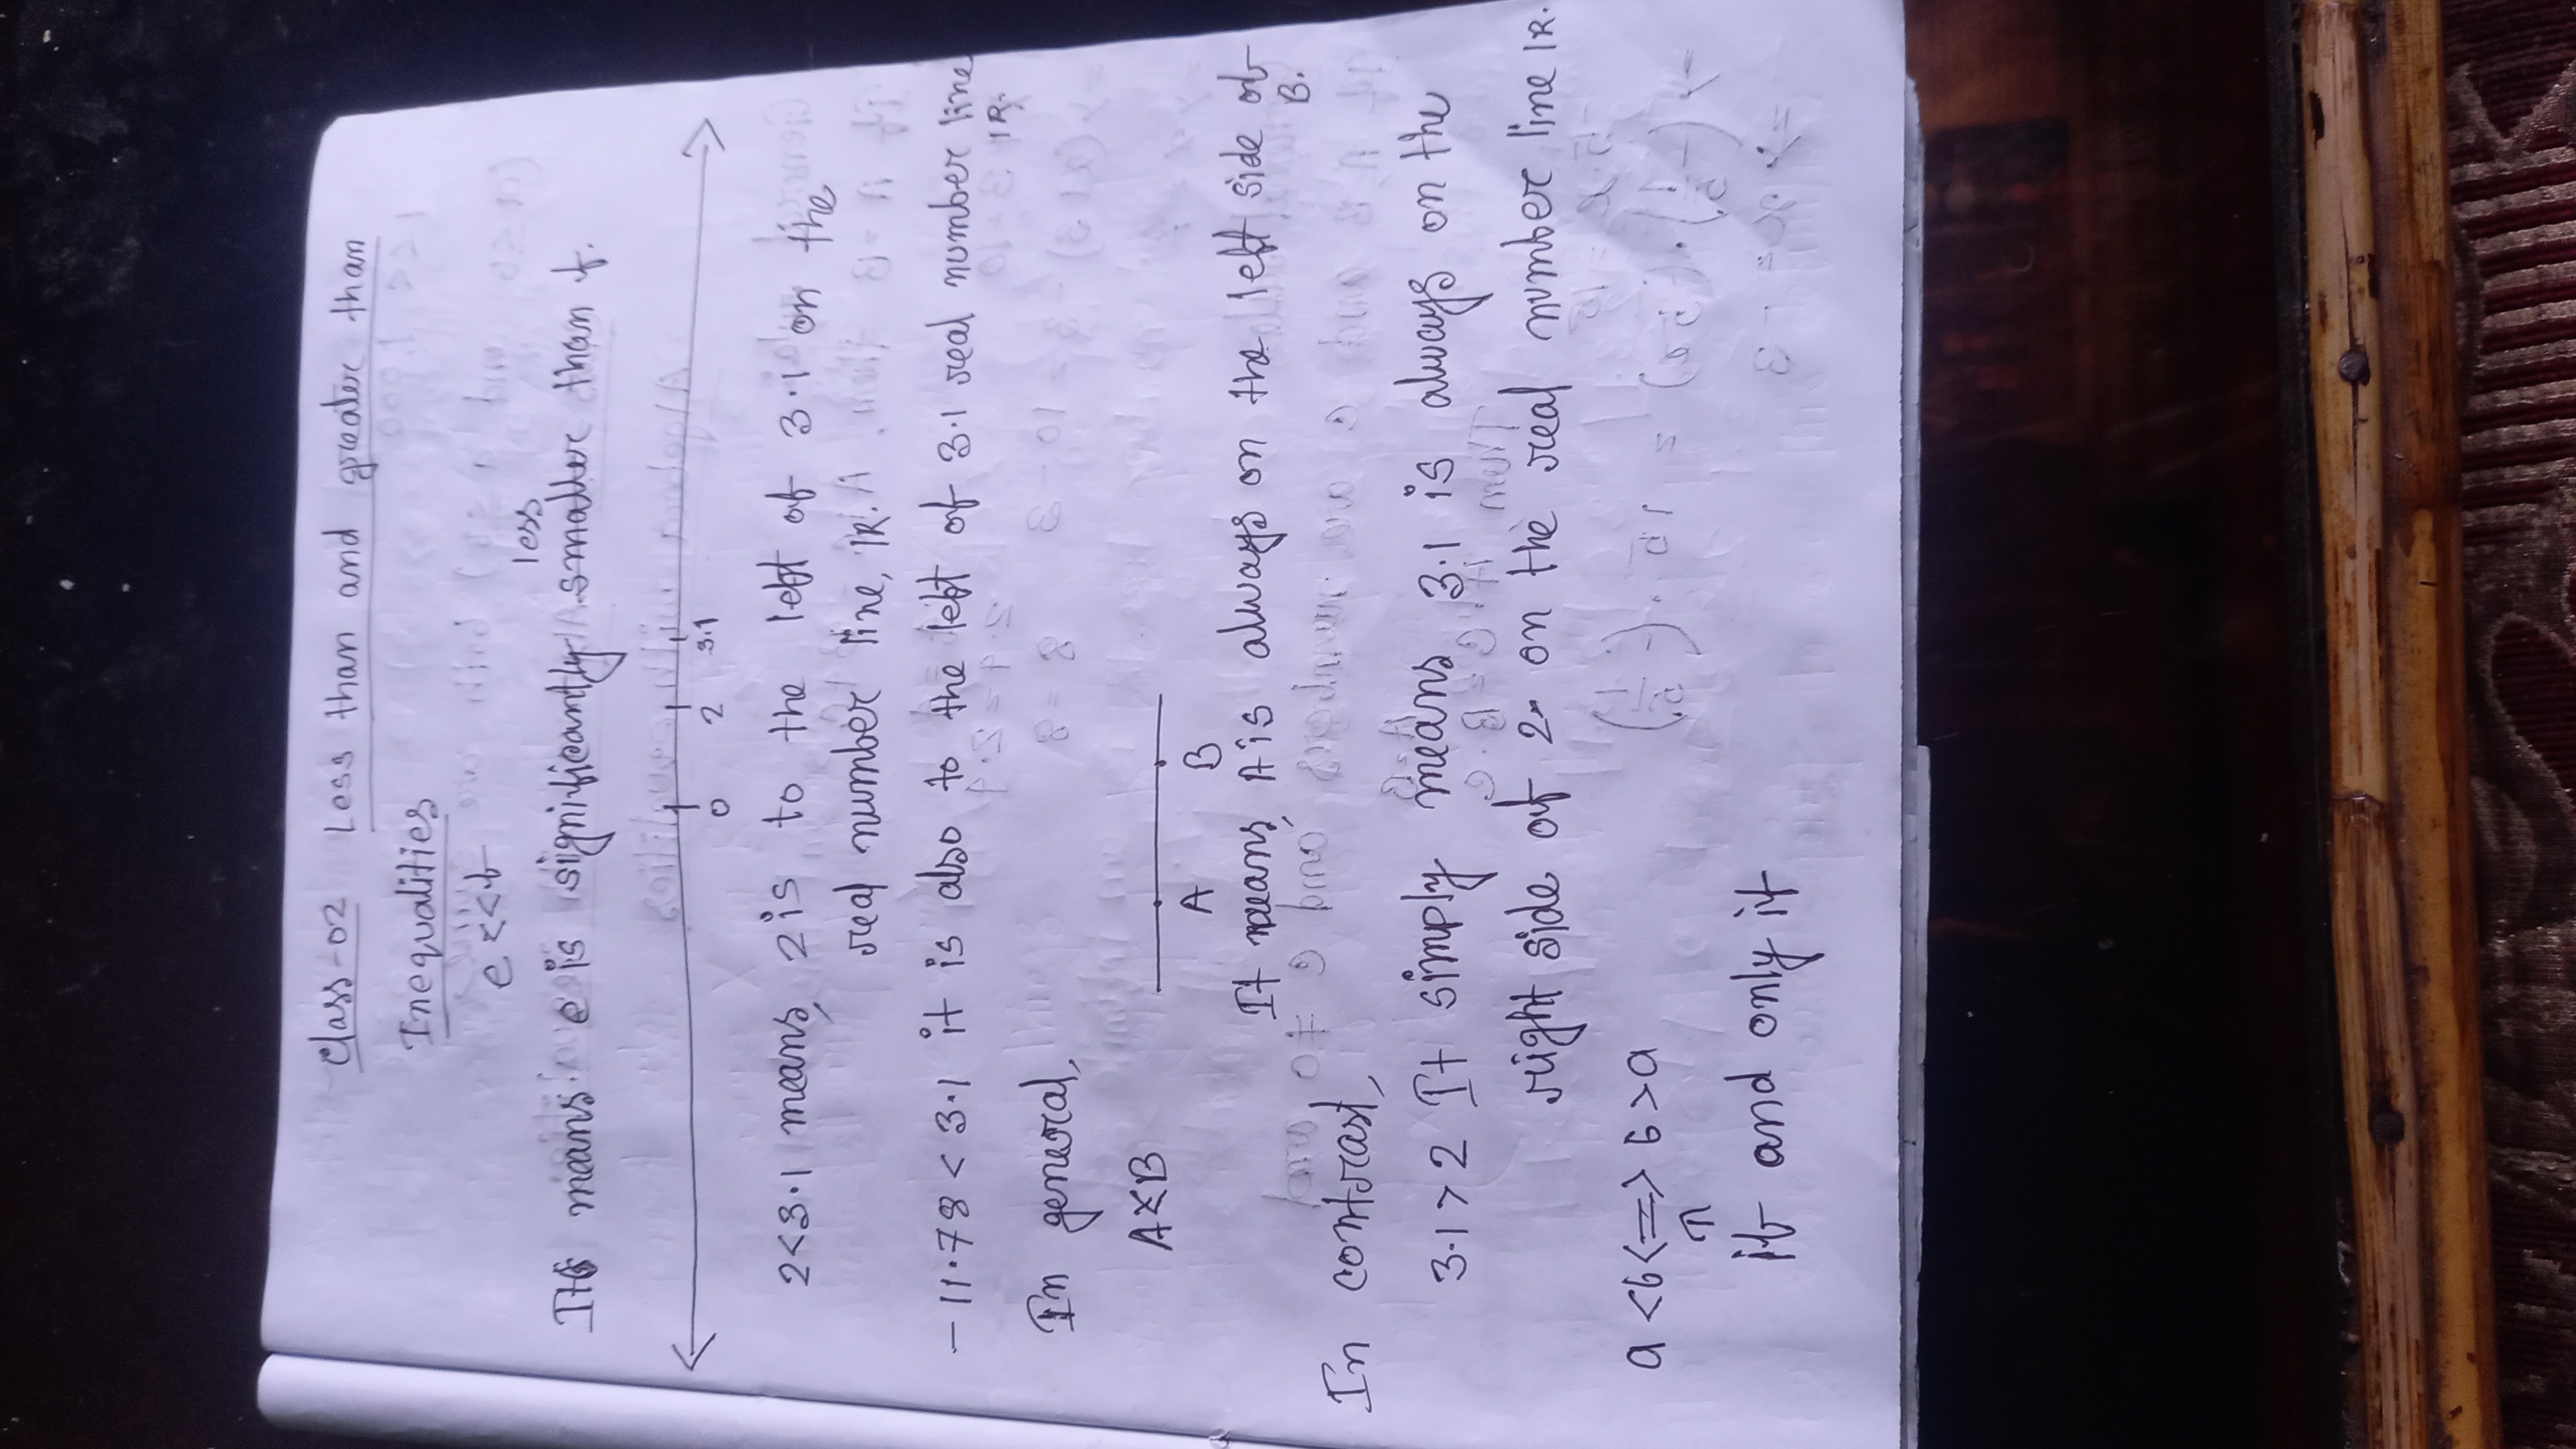 Class-02 Less than and greater than
Inequalities
e << f
It means e is significantly smaller than f.
less
0 2 3.1
2<3.1 means, 2 is to the left of 3.1 on the
real number line, IR.
-11.78 < 3.1 it is also to the left of 3.1 real number line
IR.
In general,
A<B
A B
It means, A is always on the left side of
B.
In contrast,
3.1 > 2 It simply means 3.1 is always on the
right side of 2 on the real number line IR.
a <b <=> b >a
if and only if